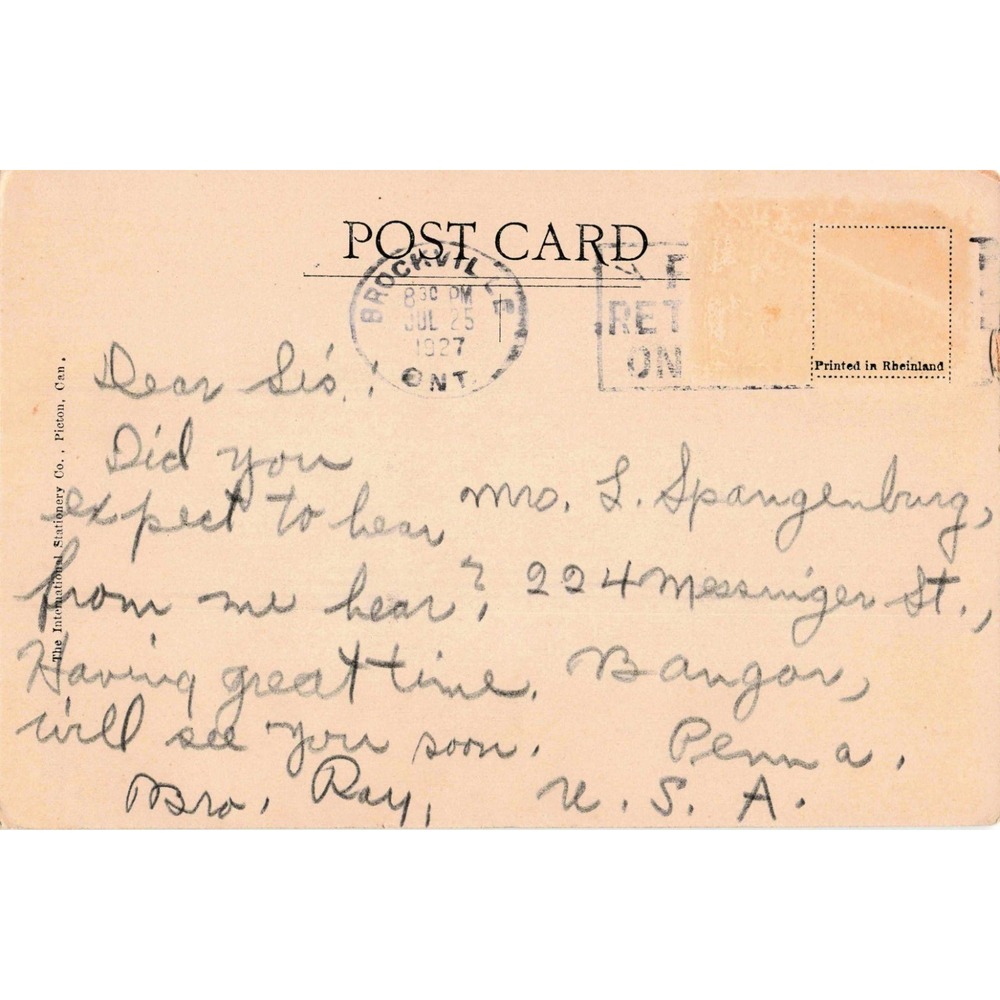 POST CARD
BROCKVILLE
8 30 PM
JUL 25
1927
ONT.
RET
ON
Printed in Rheinland
The International Stationery Co., Picton, Can.
Dear Sis.!
Did you
expect to hear
from me hear?
Having great time.
will see you soon.
Bro. Ray,
Mrs. L. Spangenburg,
224 Messinger St.,
Bangor,
Penna.
U. S. A.